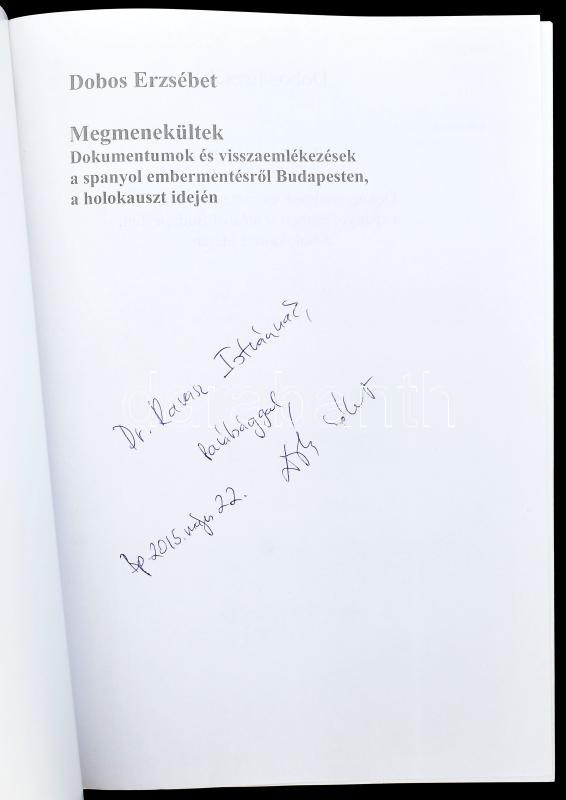 Dobos Erzsébet
Megmenekültek
Dokumentumok és visszaemlékezések
a spanyol embermentésről Budapesten,
a holokauszt idején
Dr. Ravasz Istvánnak,
barátsággal,
Bp. 2015. május 22.
darabanth